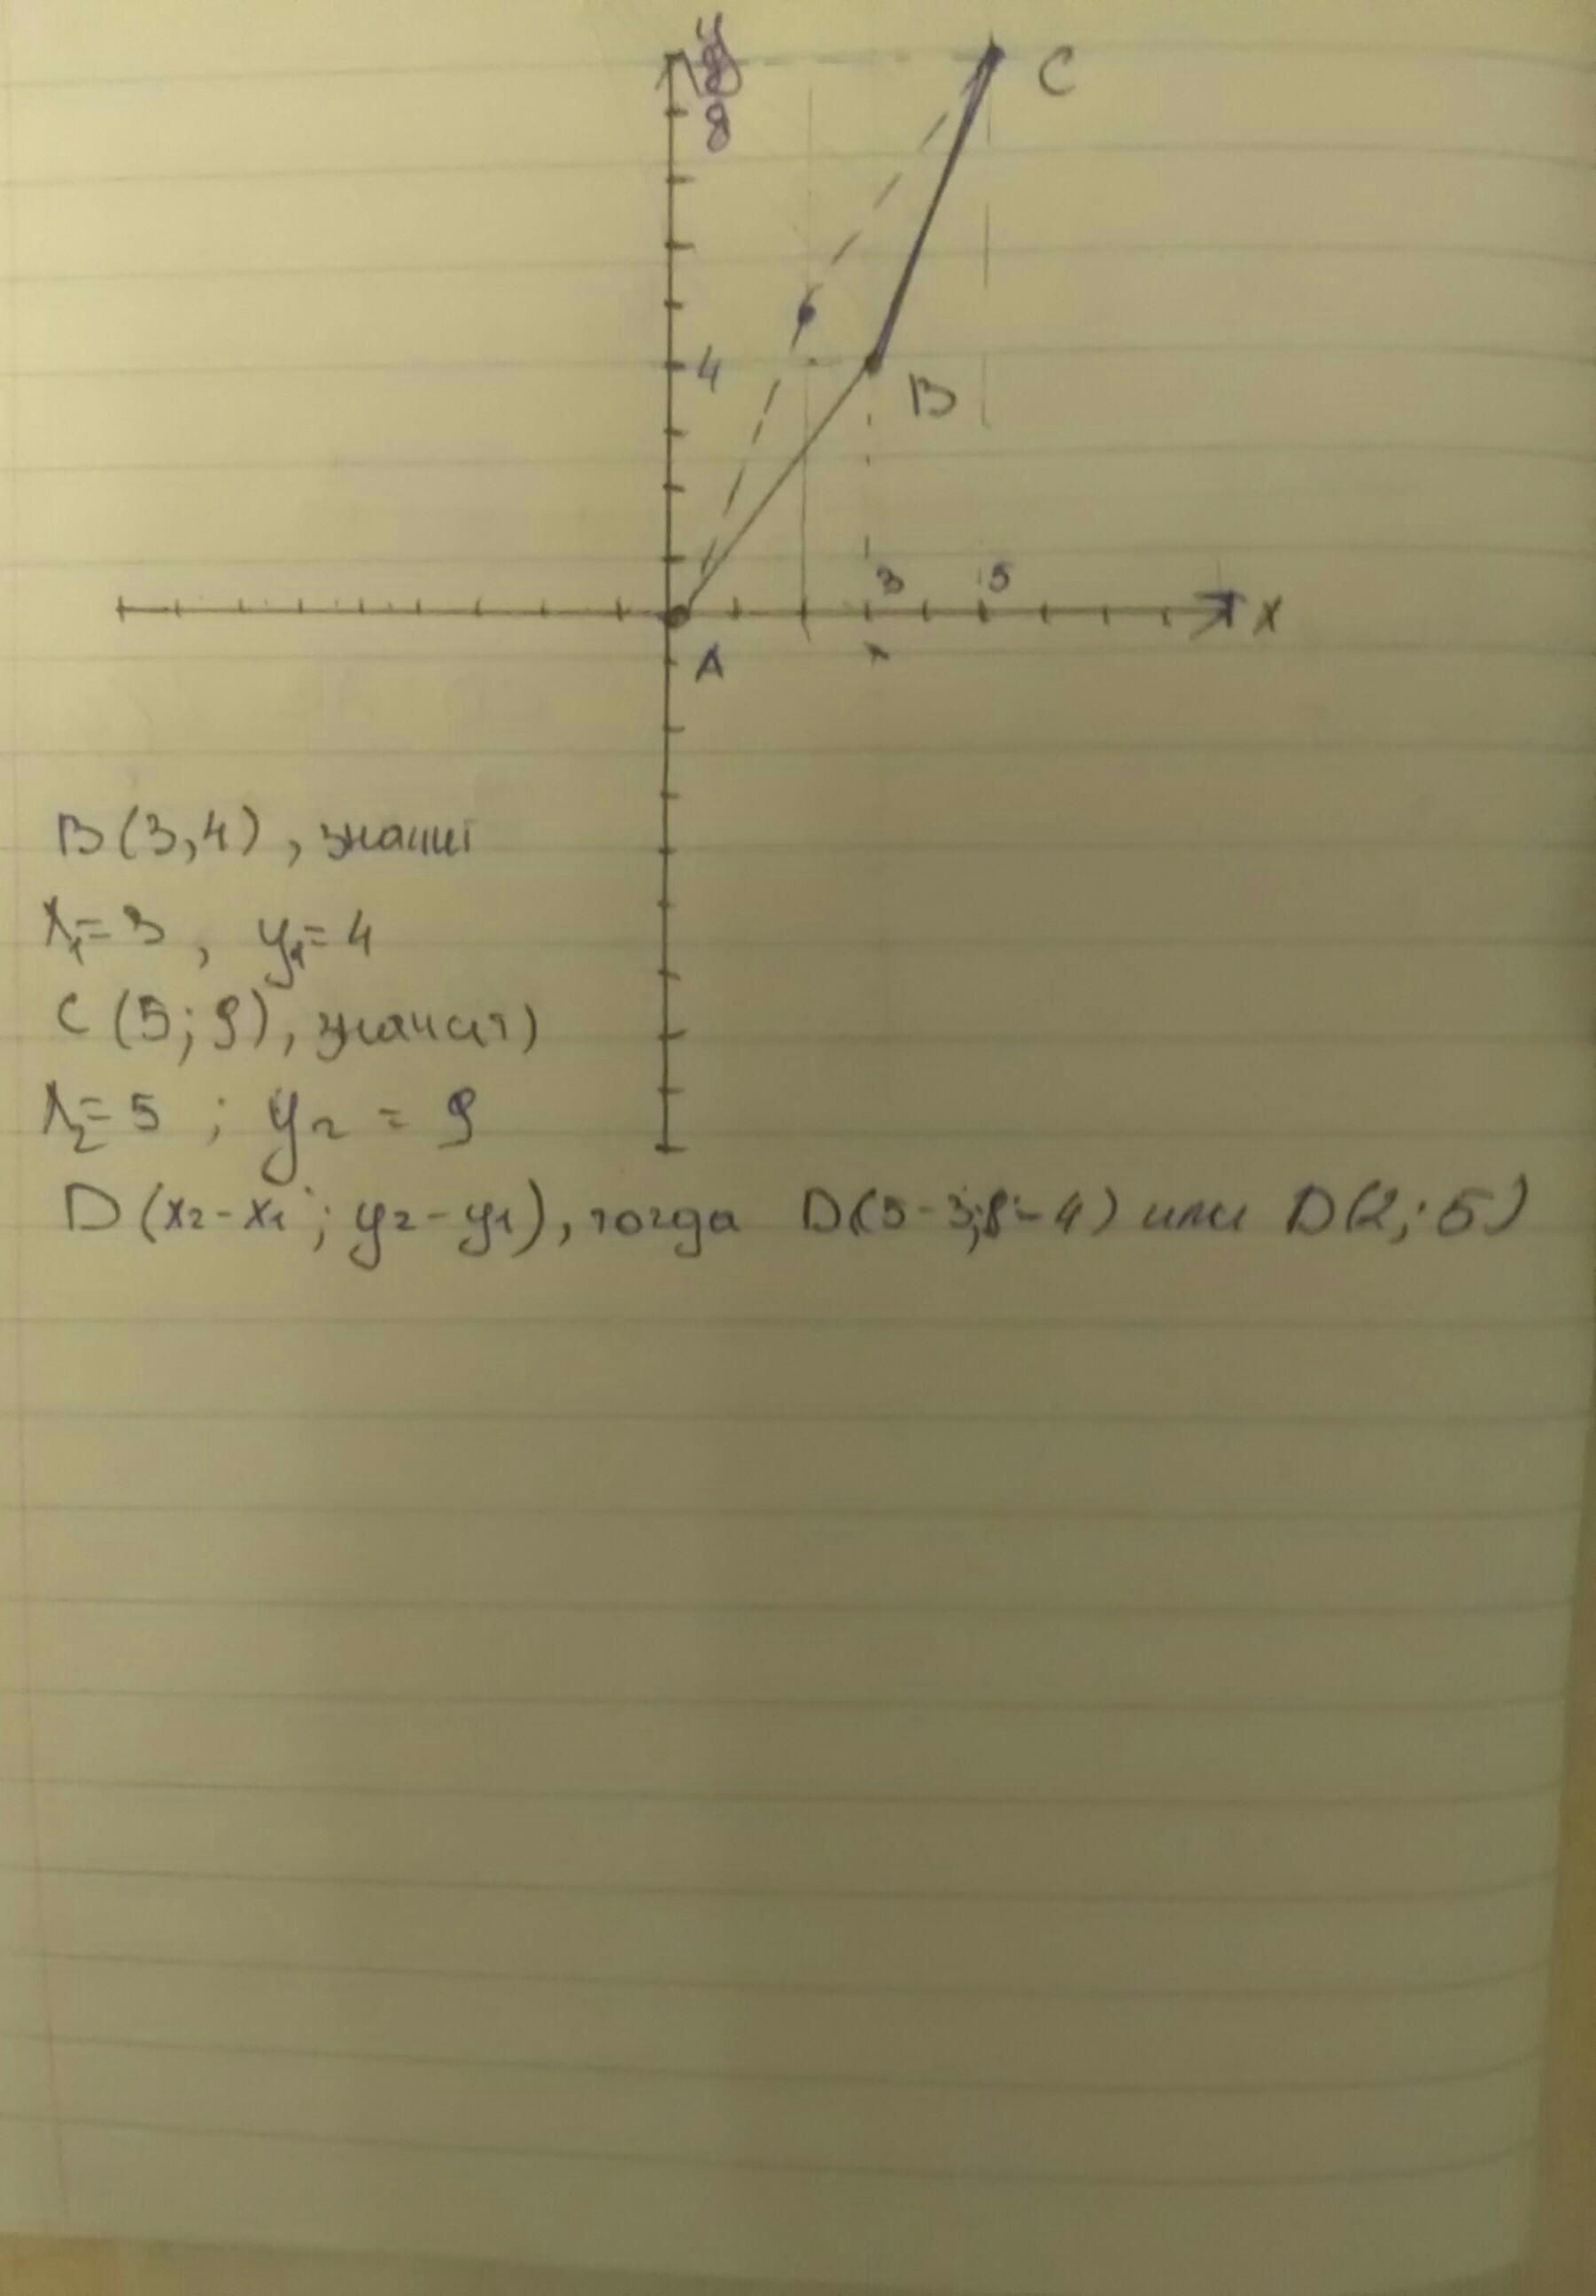 y
8
C
4
B
3 5
x
A
B(3,4), значит
x₁=3, y₁=4
C(5;9), значит)
x₂=5; y₂=9
D(x₂-x₁; y₂-y₁), тогда D(5-3;8-4) или D(2;5)